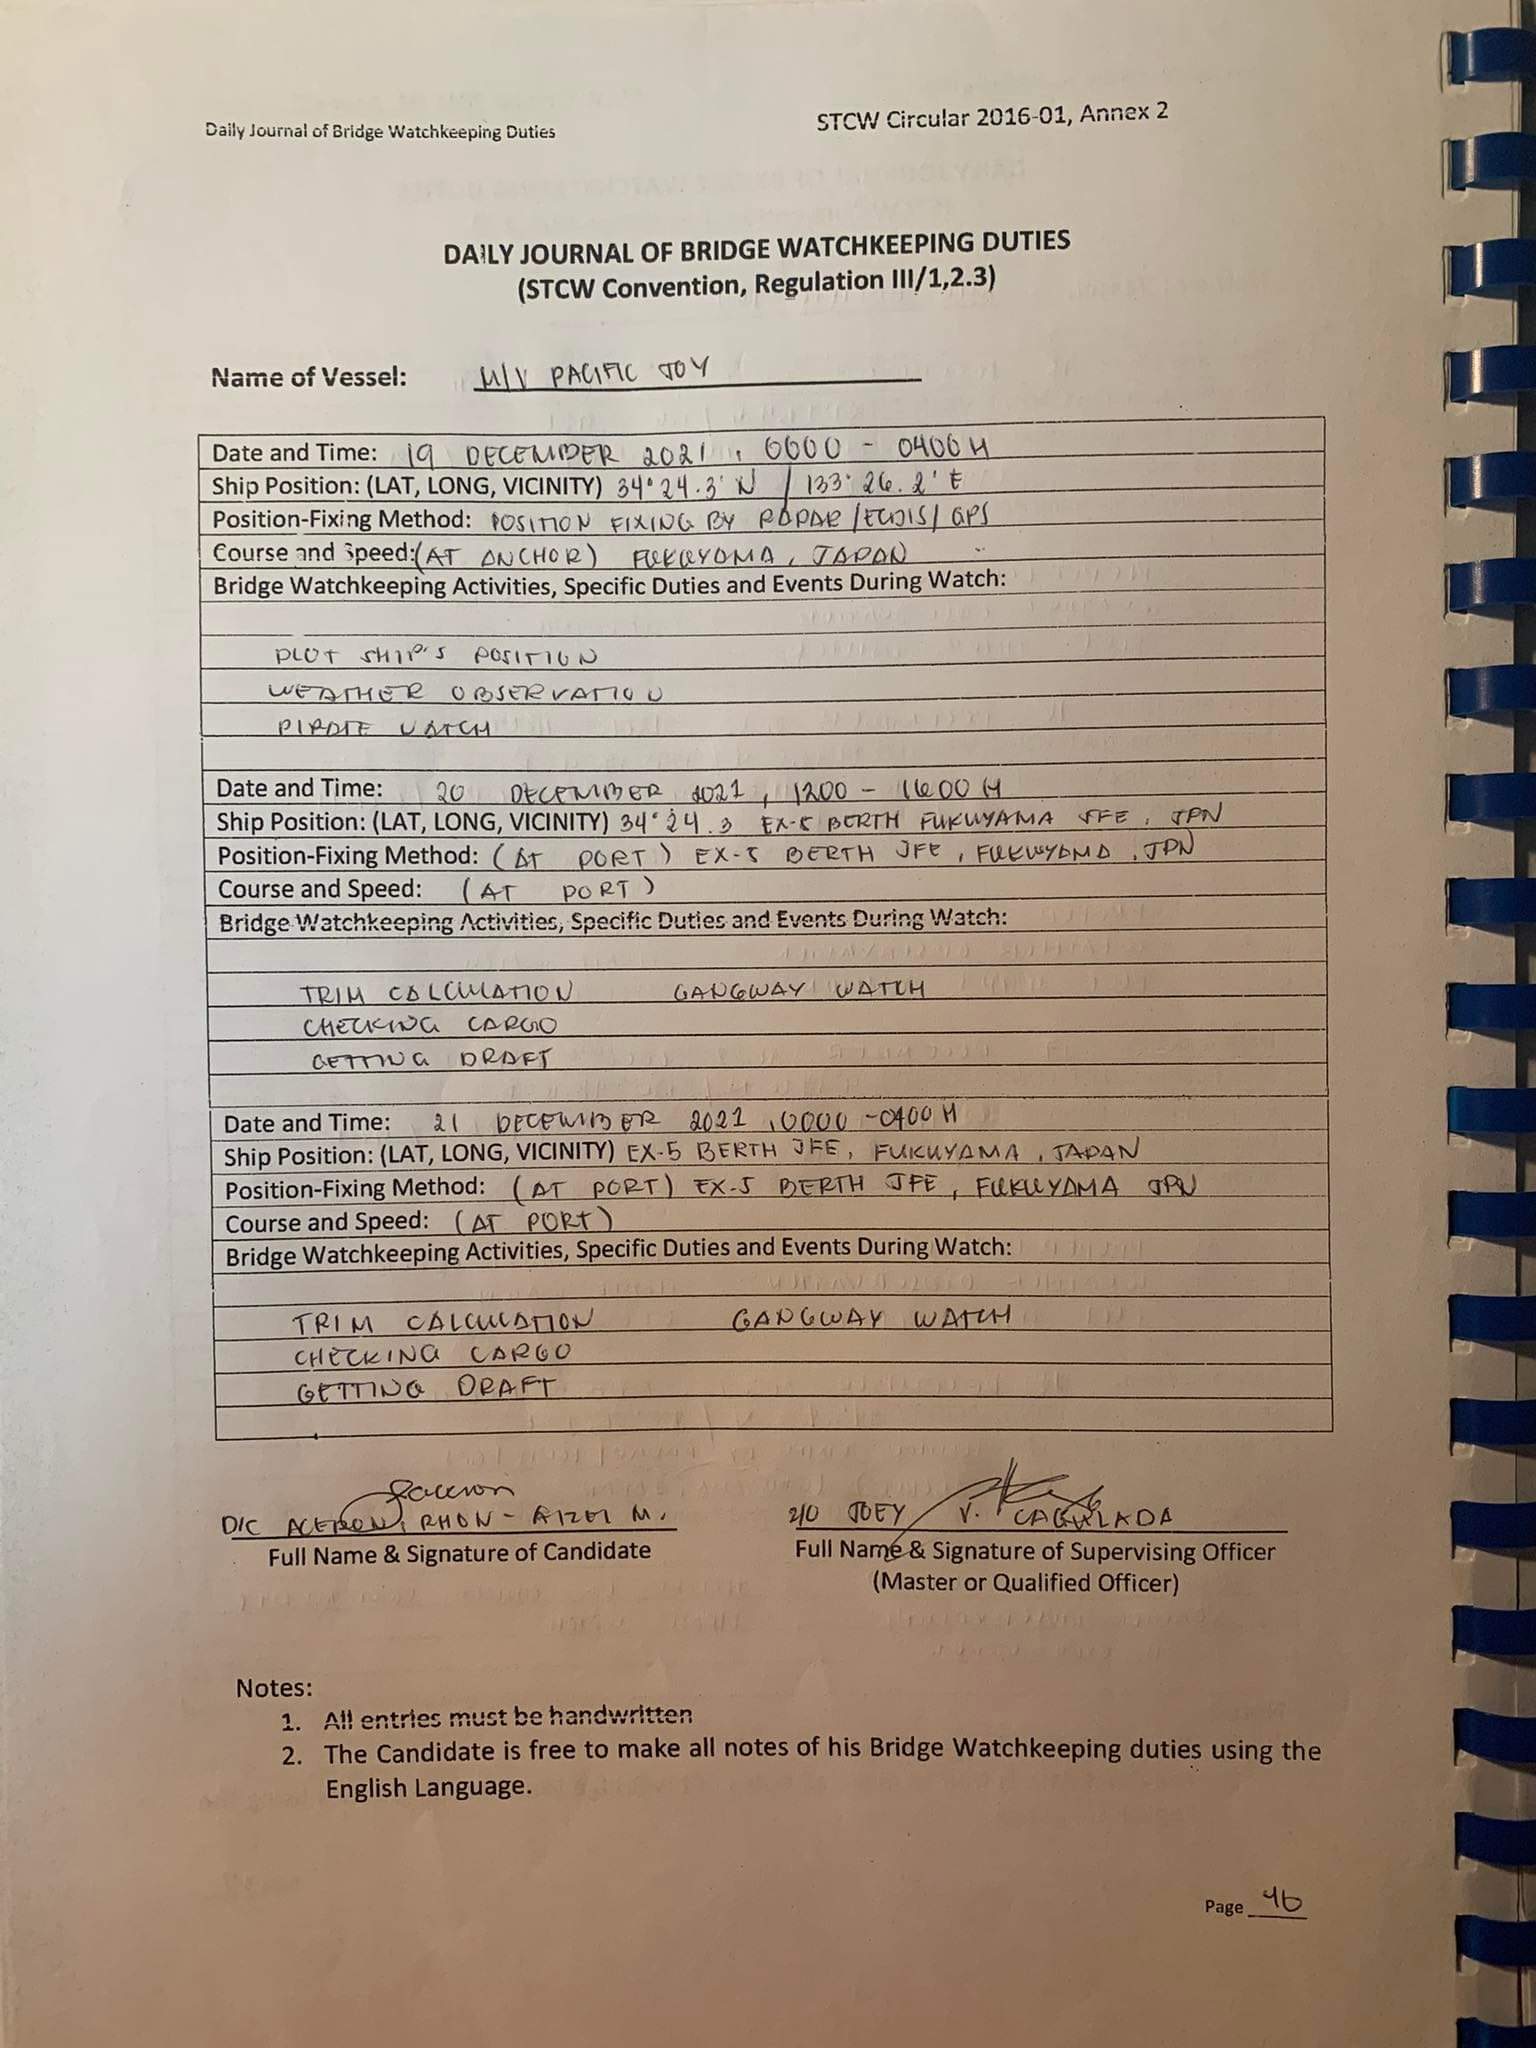 Daily Journal of Bridge Watchkeeping Duties
STCW Circular 2016-01, Annex 2
DAILY JOURNAL OF BRIDGE WATCHKEEPING DUTIES
(STCW Convention, Regulation III/1,2.3)
Name of Vessel: M/V PACIFIC JOY
Date and Time: 19 DECEMBER 2021, 0000 - 0400 H
Ship Position: (LAT, LONG, VICINITY) 34° 24.3' N / 133° 26.2' E
Position-Fixing Method: POSITION FIXING BY RADAR/ECDIS/GPS
Course and Speed: (AT ANCHOR) FUKUYAMA, JAPAN
Bridge Watchkeeping Activities, Specific Duties and Events During Watch:
PLOT SHIP'S POSITION
WEATHER OBSERVATION
PIRATE WATCH
Date and Time: 20 DECEMBER 2021, 1200 - 1600 H
Ship Position: (LAT, LONG, VICINITY) 34° 24.3 EX-5 BERTH FUKUYAMA JFE, JPN
Position-Fixing Method: (AT PORT) EX-5 BERTH JFE, FUKUYAMA, JPN
Course and Speed: (AT PORT)
Bridge Watchkeeping Activities, Specific Duties and Events During Watch:
TRIM CALCULATION GANGWAY WATCH
CHECKING CARGO
GETTING DRAFT
Date and Time: 21 DECEMBER 2021, 0000 - 0400 H
Ship Position: (LAT, LONG, VICINITY) EX-5 BERTH JFE, FUKUYAMA, JAPAN
Position-Fixing Method: (AT PORT) EX-5 BERTH JFE, FUKUYAMA JPN
Course and Speed: (AT PORT)
Bridge Watchkeeping Activities, Specific Duties and Events During Watch:
TRIM CALCULATION GANGWAY WATCH
CHECKING CARGO
GETTING DRAFT
D/C ACERON, RHON- M. 2/O JOEY V.
Full Name & Signature of Candidate
Full Name & Signature of Supervising Officer
(Master or Qualified Officer)
Notes:
1. All entries must be handwritten
2. The Candidate is free to make all notes of his Bridge Watchkeeping duties using the
English Language.
Page 46